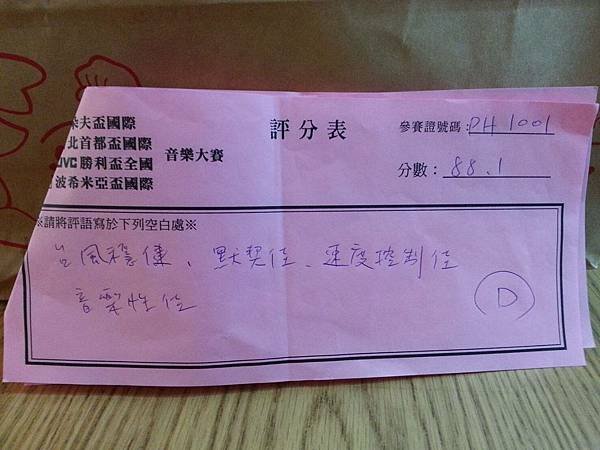 夫盃國際
北首都盃國際
JVC勝利盃全國
波希米亞盃國際
音樂大賽
評分表
參賽證號碼：DH1001
分數：88.1
※請將評語寫於下列空白處※
台風穩健、默契佳、速度控制佳
音樂性佳
D